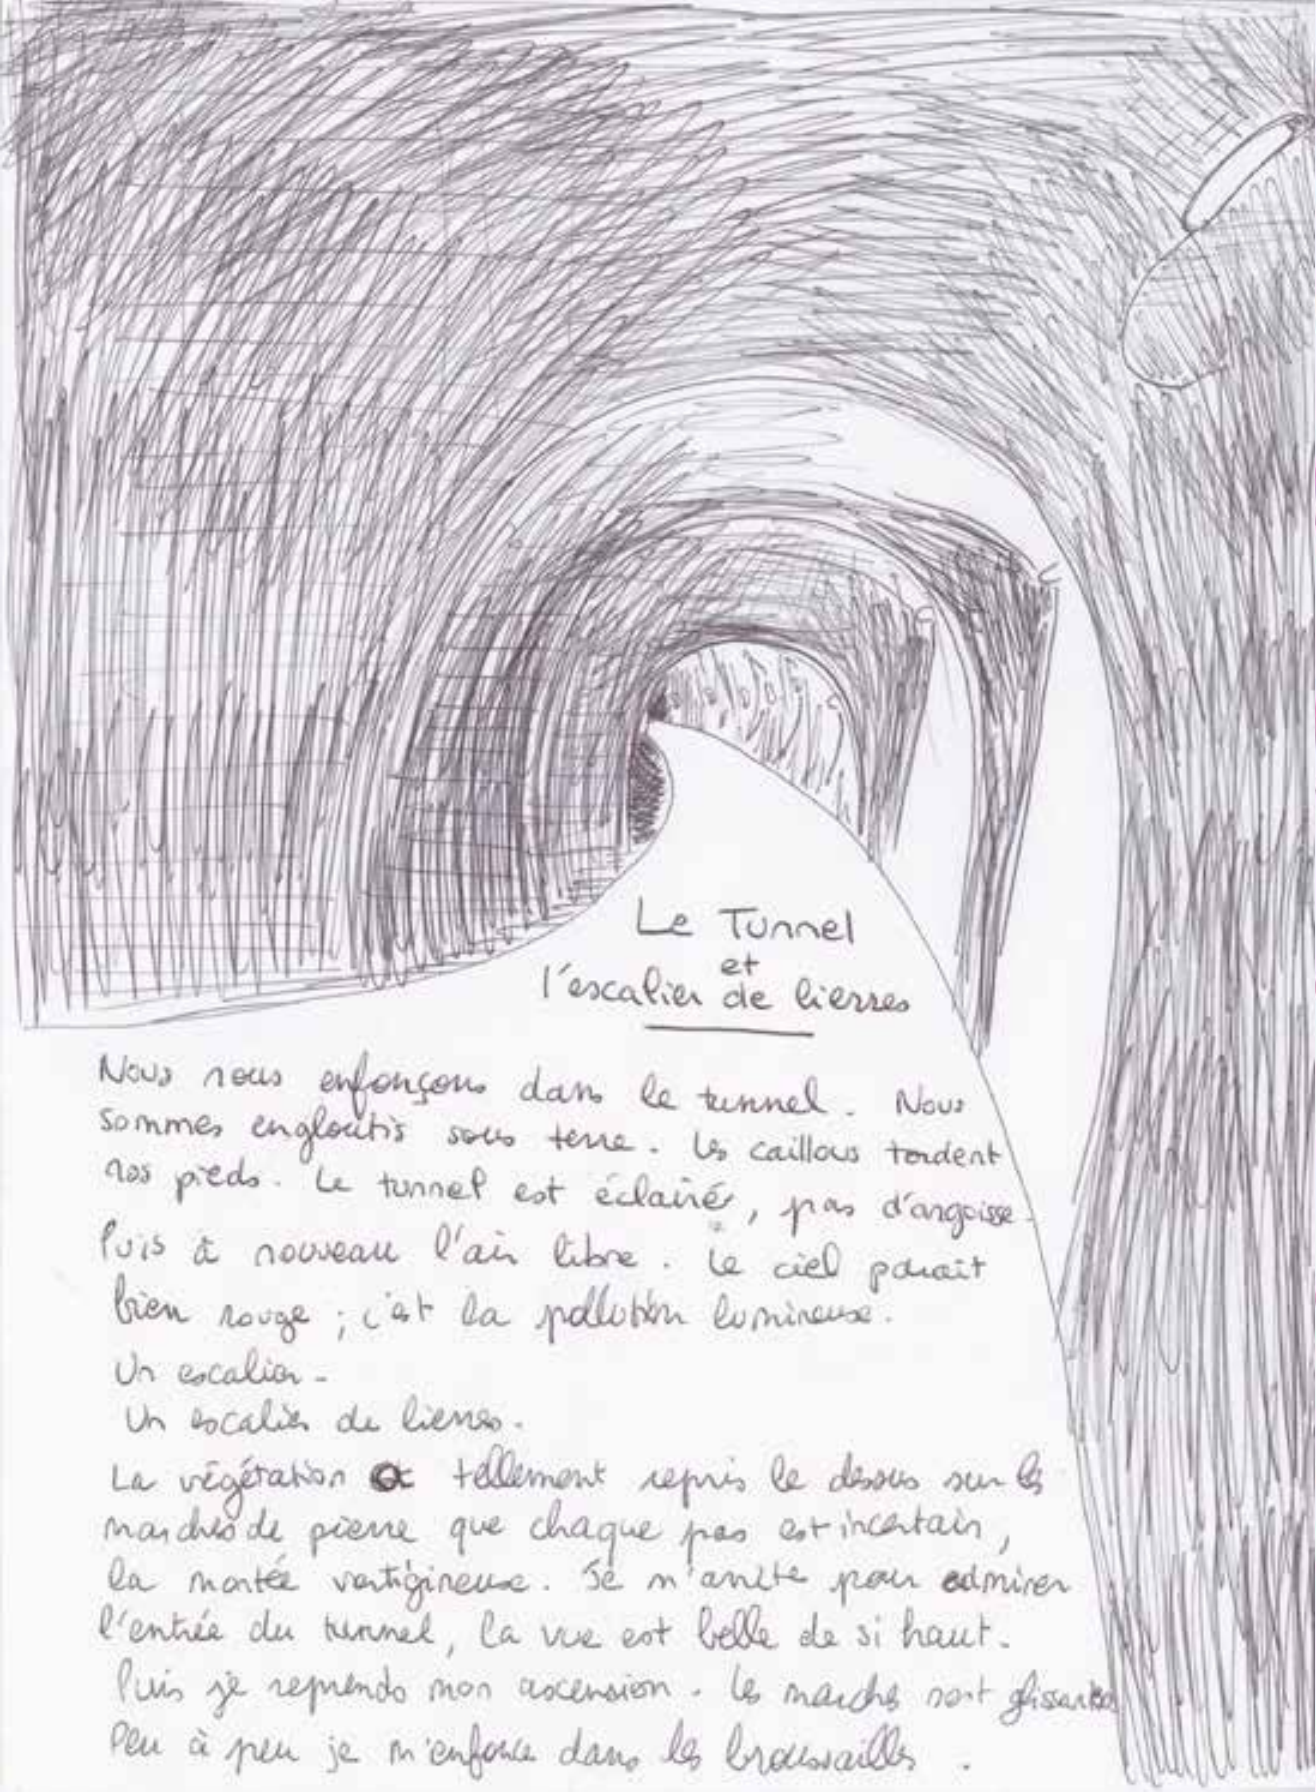 Le Tunnel
et
l'escalier de lierres
Nous nous enfonçons dans le tunnel. Nous
sommes engloutis sous terre. Les caillous tordent
nos pieds. Le tunnel est éclairé, pas d'angoisse.
Puis à nouveau l'air libre. Le ciel parait
bien rouge ; c'est la pollution lumineuse.
Un escalier.
Un escalier de lierres.
La végétation a tellement repris le dessus sur les
marches de pierre que chaque pas est incertain,
la montée vertigineuse. Je m'arrête pour admirer
l'entrée du tunnel, la vue est belle de si haut.
Puis je reprends mon ascension. Les marches sont glissantes
Peu à peu je m'enfonce dans les broussailles.